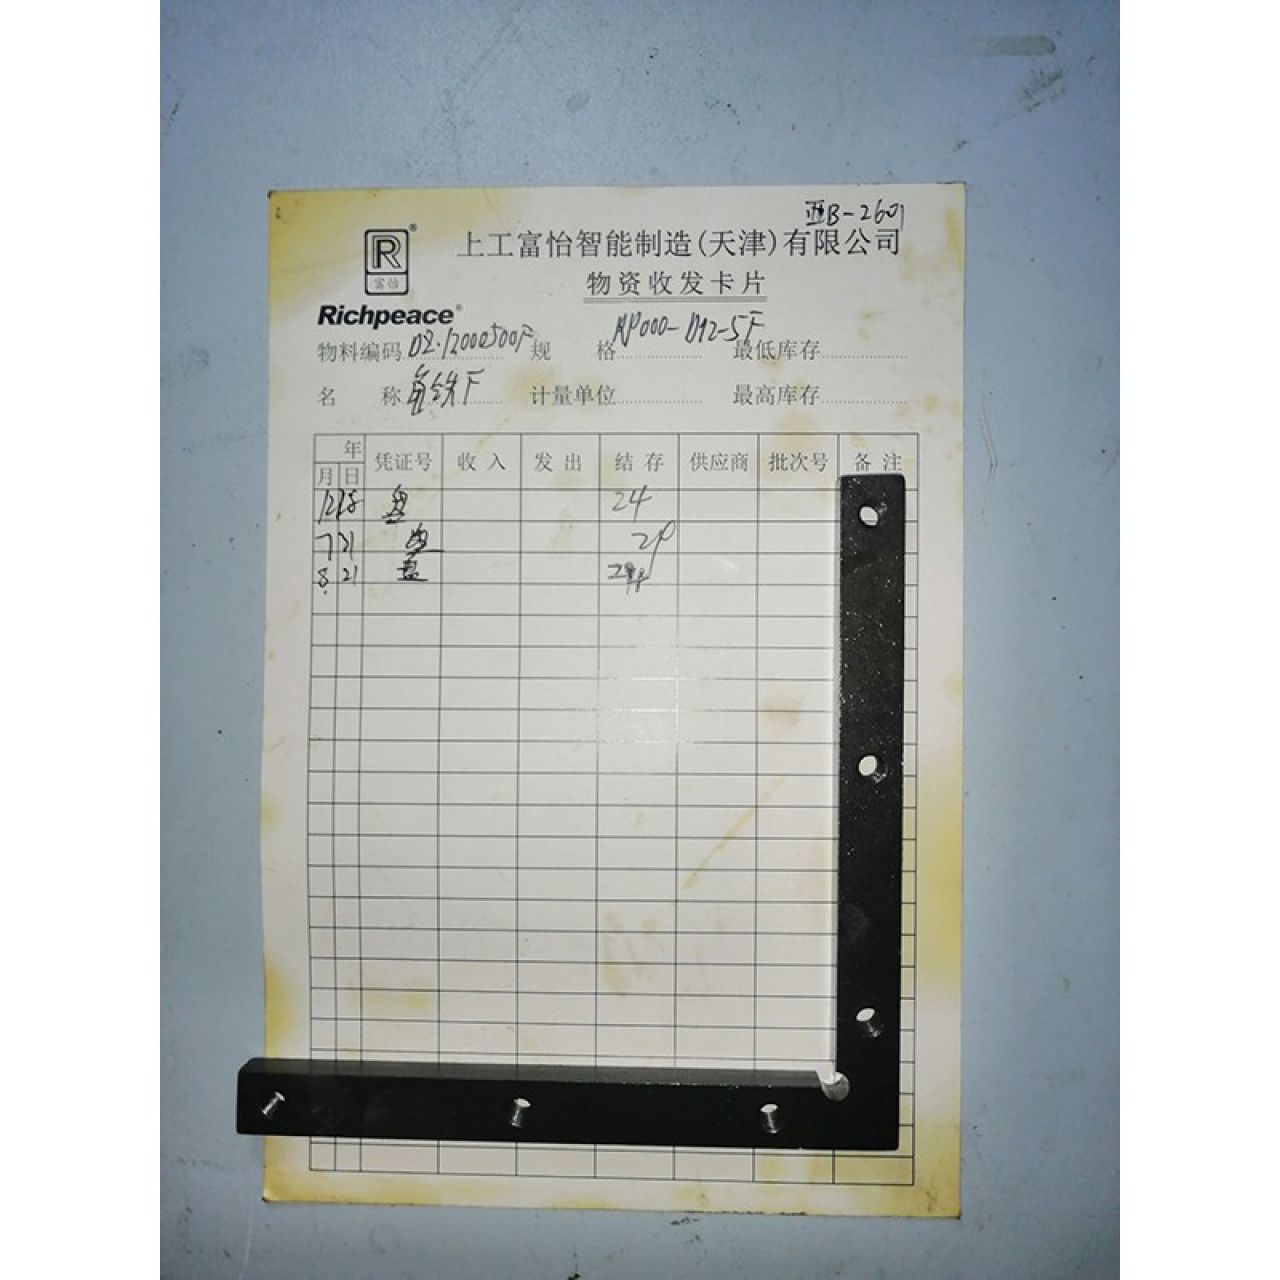 亚B-2601
R®
富怡
上工富怡智能制造(天津)有限公司
物资收发卡片
Richpeace®
物料编码 02.12000500F 规 格 RP000-D12-5F 最低库存
名 称 角铁F 计量单位 最高库存
年
月 日 凭证号 收入 发出 结存 供应商 批次号 备注
盘 24
7 21 盘
8 21 盘